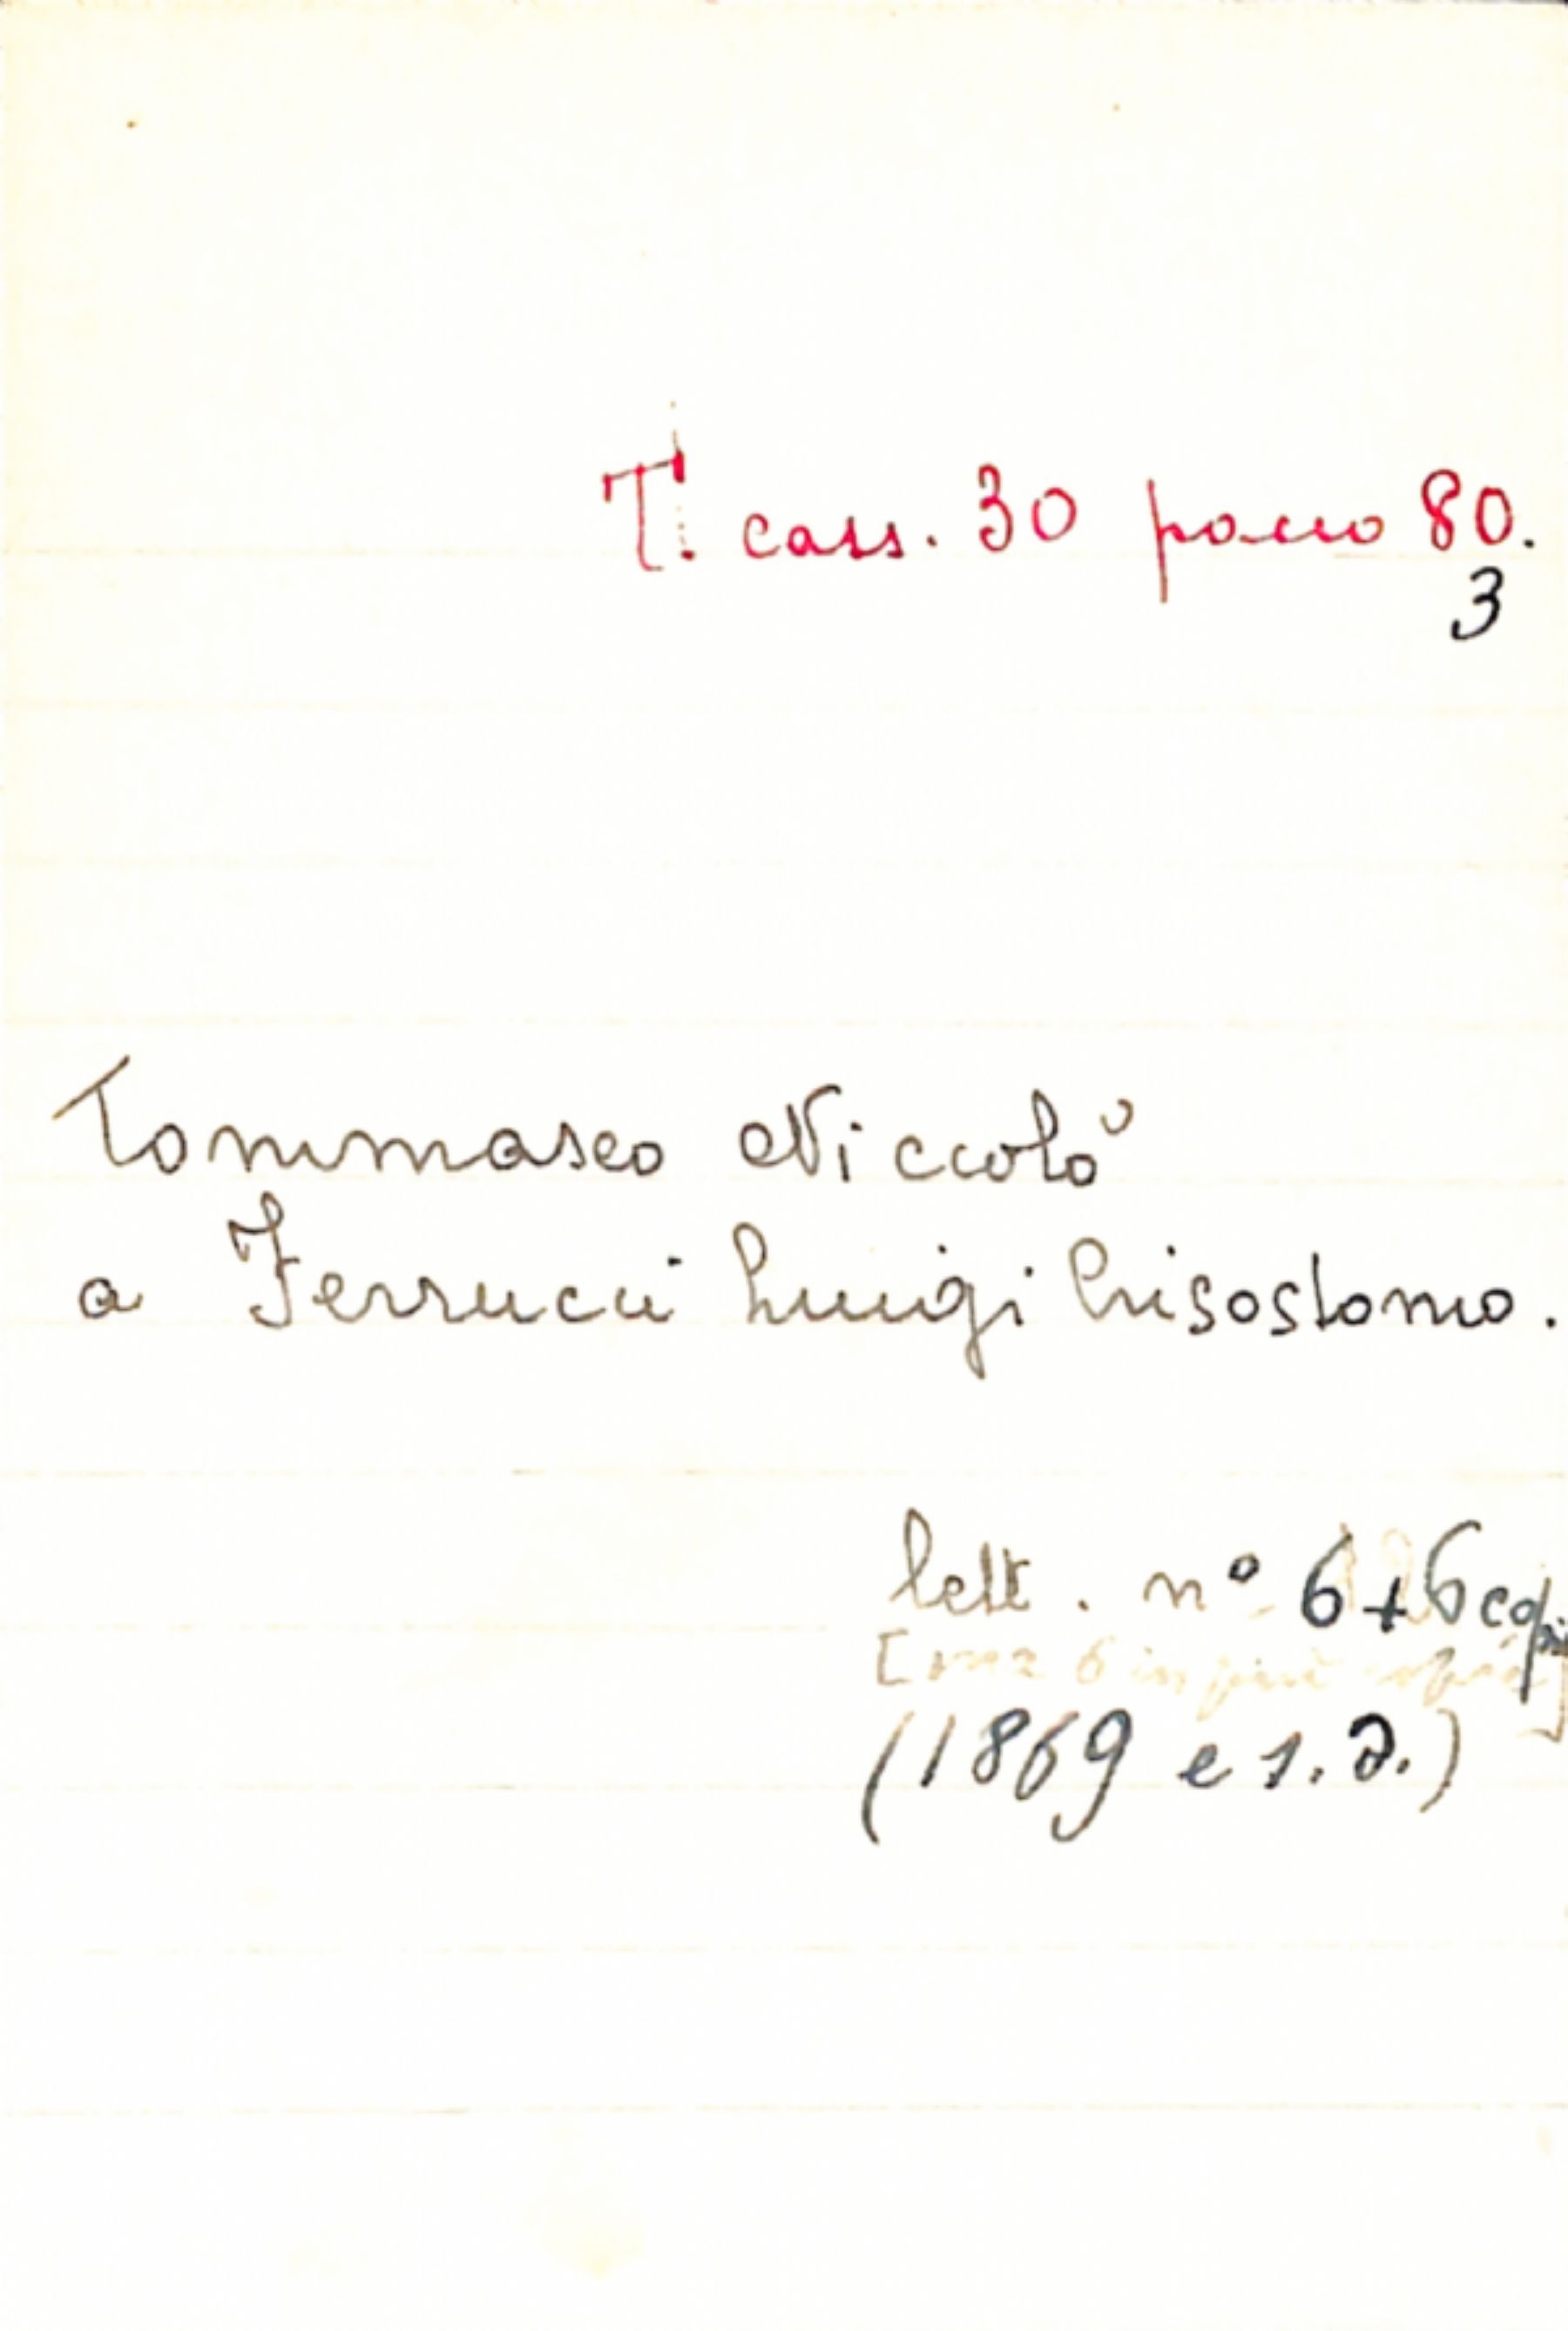 T. cass. 30 pacco 80.
3
Tommaseo Niccolò
a Ferrucci Luigi Crisostomo.
lett. nº 6 + 6 copie
(1869 e s. d.)